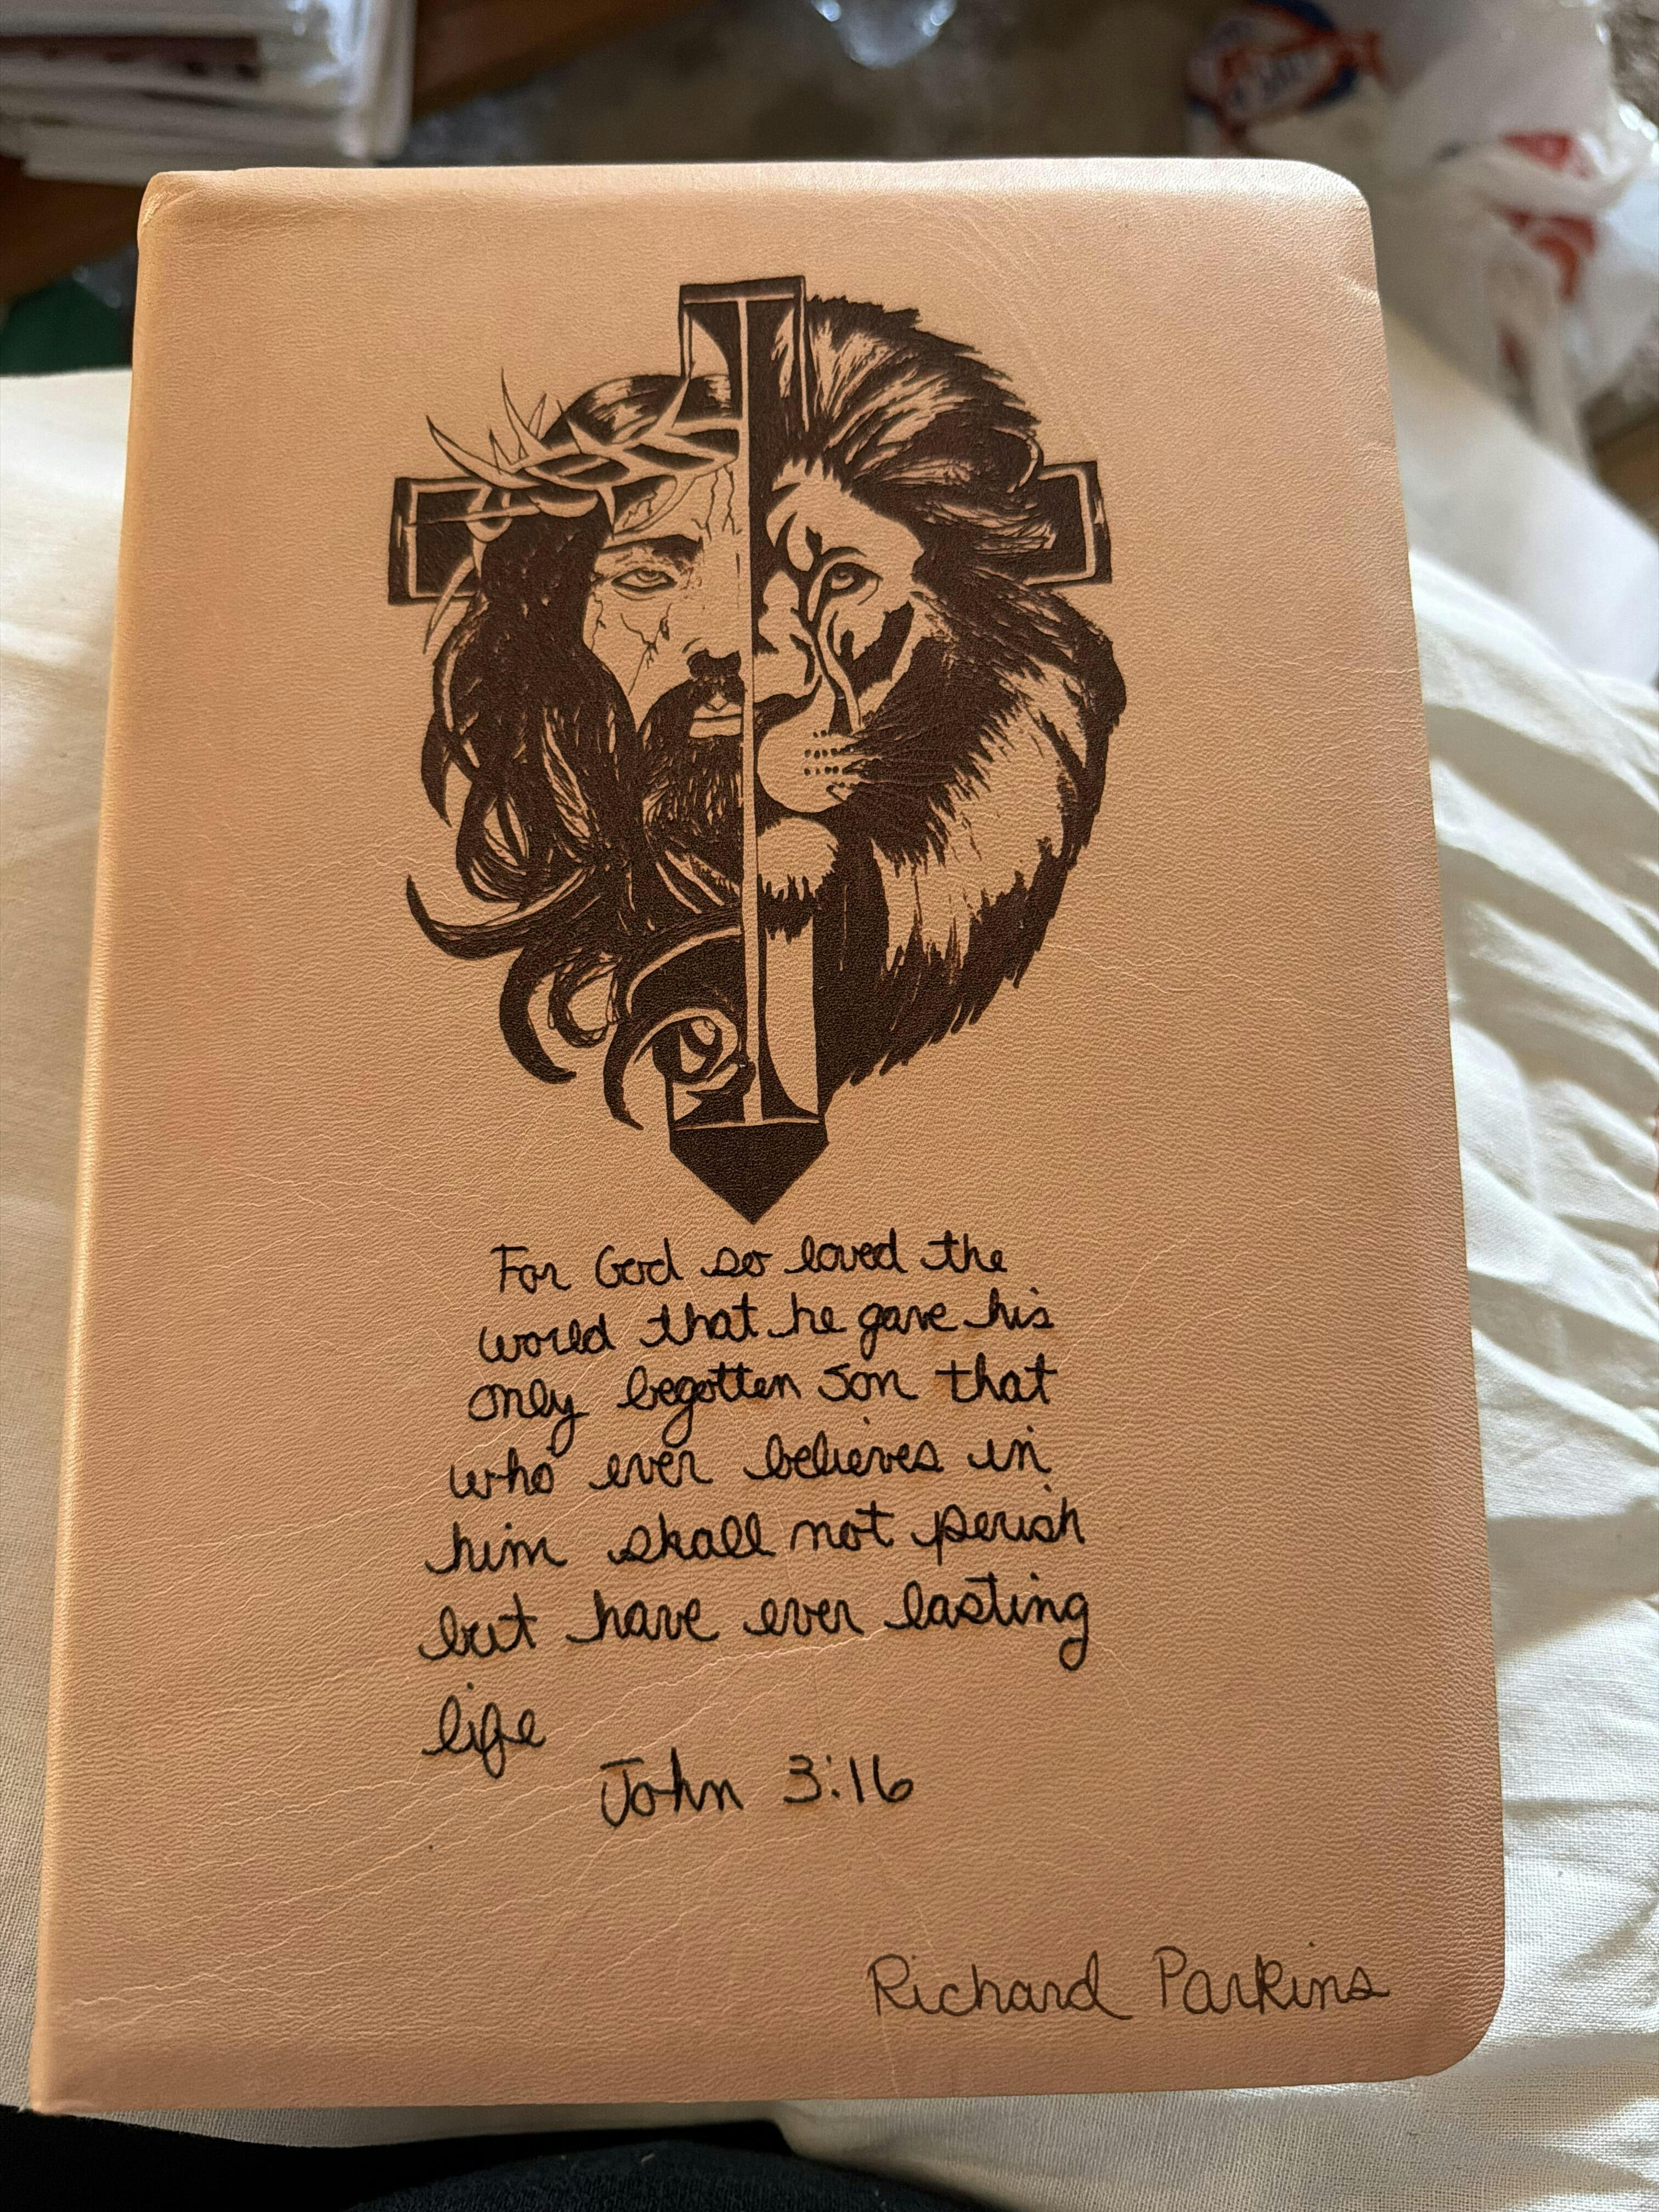 For God so loved the
world that he gave his
only begotten son that
who ever believes in
him shall not perish
but have ever lasting
life
John 3:16
Richard Parkins